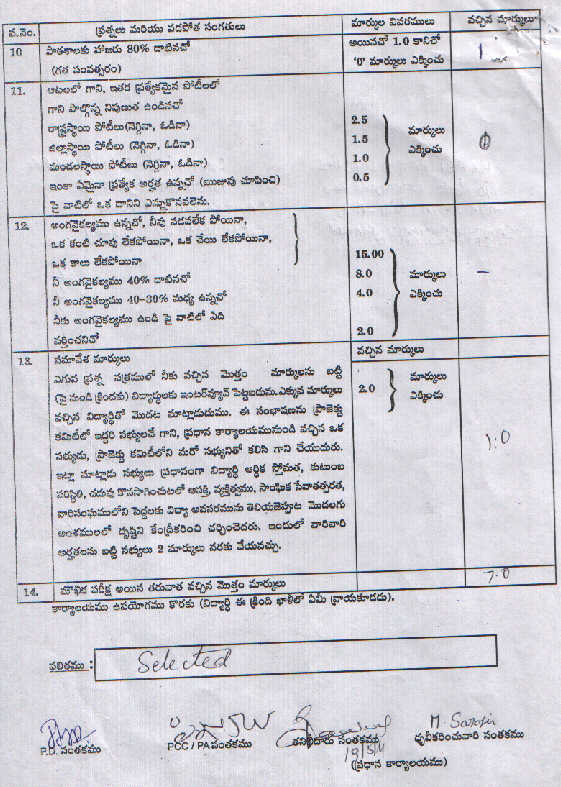 వ.నెం. ప్రశ్నలు మరియు వడపోత సంగతులు మార్కుల వివరములు వచ్చిన మార్కులు
10 పాఠశాలకు హాజరు 80% దాటినచో అయినచో 1.0 కానిచో 1
(గత సంవత్సరం) '0' మార్కులు ఎక్కించు
11. ఆటలలో గాని, ఇతర ప్రత్యేకమైన పోటీలలో
గాని పాల్గొన్న నిపుణుత ఉండినచో
రాష్ట్రస్థాయి పోటీలు(నెగ్గినా, ఓడినా) 2.5 మార్కులు
జిల్లాస్థాయి పోటీలు (నెగ్గినా, ఓడినా) 1.5 ఎక్కించు
మండలస్థాయి పోటీలు (నెగ్గినా, ఓడినా) 1.0
ఇంకా ఏమైనా ప్రత్యేక అర్హత ఉన్నచో (ఋజువు చూపించి) 0.5
పై వాటిలో ఒక దానిని ఎన్నుకొనవలెను.
12. అంగవైకల్యము ఉన్నచో, నీవు నడవలేక పోయినా,
ఒక కంటి చూపు లేకపోయినా, ఒక చేయి లేకపోయినా,
ఒక కాలు లేకపోయినా 15.00
నీ అంగవైకల్యము 40% దాటినచో 8.0 మార్కులు –
నీ అంగవైకల్యము 40-30% మధ్య ఉన్నచో 4.0 ఎక్కించు
నీకు అంగవైకల్యము ఉండి పై వాటిలో ఏది
వర్తించనిచో 2.0
13. సమావేశ మార్కులు వచ్చిన మార్కులు
ఎగువ ప్రశ్న పత్రకములో నీకు వచ్చిన మొత్తం మార్కులను బట్టి 2.0 మార్కులు
(పై నుండి క్రిందకు) విద్యార్థులకు ఇంటర్వ్యూవ్ పెట్టబడును.ఎక్కువ మార్కులు ఎక్కించు
వచ్చిన విద్యార్థితో మొదట మాట్లాడుదుము. ఈ సంభాషణను ప్రాజెక్టు
కమిటీలో ఇద్దరి సభ్యులచే గాని, ప్రధాన కార్యాలయమునుండి వచ్చిన ఒక
సభ్యుడు, ప్రాజెక్టు కమిటీలోని మరో సభ్యునితో కలిసి గాని చేయుదురు. 1.0
ఇట్లా మాట్లాడు సభ్యులు ప్రధానంగా విద్యార్థి ఆర్థిక స్తోమత, కుటుంబ
పరిస్థితి, చదువు కొనసాగించుటలో ఆసక్తి, వ్యక్తిత్వము, సాంఘిక సేవాతత్పరత,
వారిసంఘములోని పెద్దలకు విద్యా అవసరమును తెలియజెప్పుట మొదలగు
అంశములలో దృష్టిని కేంద్రీకరించి చర్చించెదరు. ఇందులో వారివారి
అర్హతలను బట్టి సభ్యులు 2 మార్కులు వరకు వేయవచ్చు.
14. మౌఖిక పరీక్ష అయిన తరువాత వచ్చిన మొత్తం మార్కులు 7.0
కార్యాలయము ఉపయోగము కొరకు (విద్యార్థి ఈ క్రింది ఖాళీలో ఏమీ వ్రాయకూడదు).
ఫలితము : Selected
P.D. సంతకము PCC / PA సంతకము తనిఖీదారు సంతకము ధృవీకరించువారి సంతకము
(ప్రధాన కార్యాలయము)